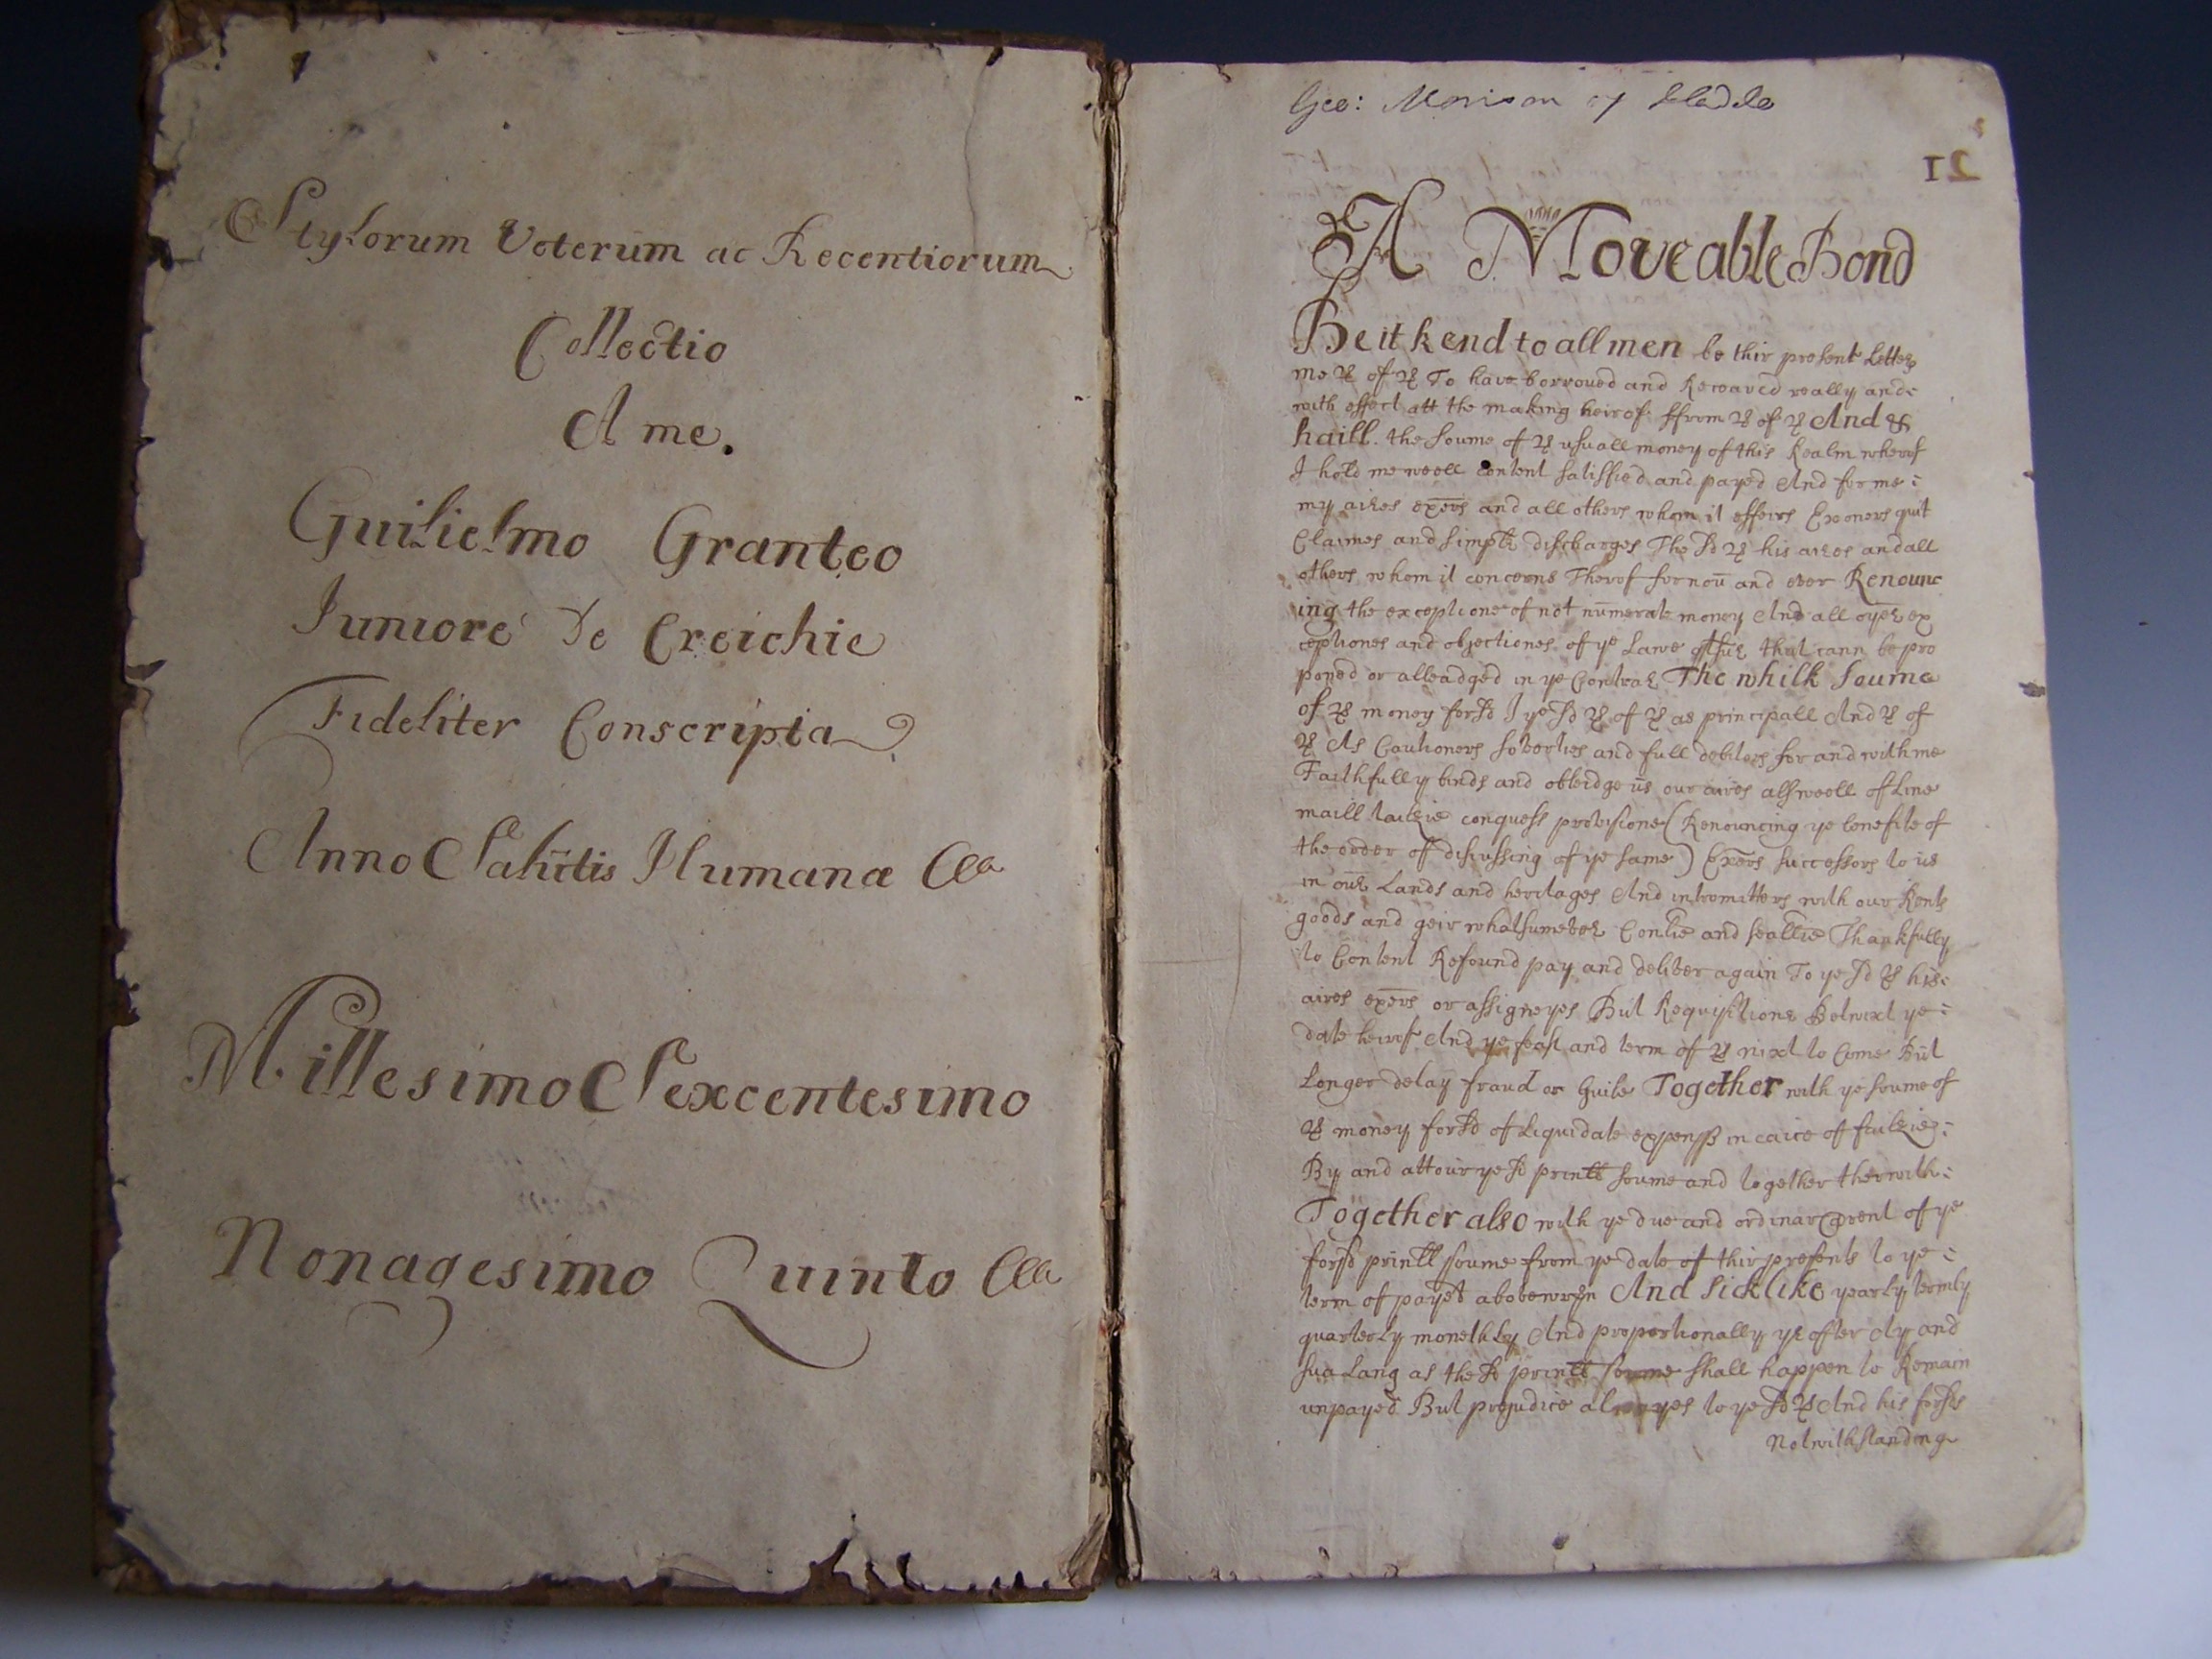 Stylorum Veterum ac Recentiorum
Collectio
A me.
Guilielmo Granteo
Juniore de Creichie
Fideliter Conscripta
Anno Salutis Humanæ &c
Millesimo Sexcentesimo
Nonagesimo Quinto &c
Geo: Morison of
A Moveable Bond
Be it kend to all men be thir present Letters
me of To have borroued and Receaved really and
with effect att the making heirof ffrom of And &
haill the soume of usuall money of this Realm wherof
I hold me weell content satisfied and payed And for me
my aires exers and all others whom it effeirs Exoners quit
Claimes and simplr discharges The sd his aires and all
others whom it concerns Therof for nou and ever Renounc
ing the exceptione of not numerate money And all oyer ex
ceptiones and objectiones of ye Lawe that cann be pro
poned or alleadged in ye Contrar The whilk soume
of money forsd I ye sd of as principall And of
As Cautioners soverties and full debitors for and with me
Faithfully binds and obleidge us our aires alsweell of Line
maill tailzie conquess provisione (Renouncing ye benefite of
the order of discussing of ye same) Exers successors to us
in our Lands and heritages And intromitters with our Rents
goods and geir whatsumever Conlie and seallie Thankfully
to Content Refound pay and deliver again To ye sd his
aires exers or assigneyes But Requisitione Betwixt ye
date heirof And ye feast and term of nixt to Come But
Longer delay fraud or Guile Together with ye soume of
money forsd of Liquidate expenss in caice of failzie
By and attour ye sd prinll soume and together therwith
Together also with ye due and ordinar @rent of ye
forsd prinll soume from ye date of thir presents to ye
term of payet abovewryn And sicklike yearly termly
quarterly monethly And proportionally yr after Ay and
sua Lang as the sd prinll soume shall happen to Remain
unpayed But prejudice alwayes to ye sd And his forsds
Notwithstanding